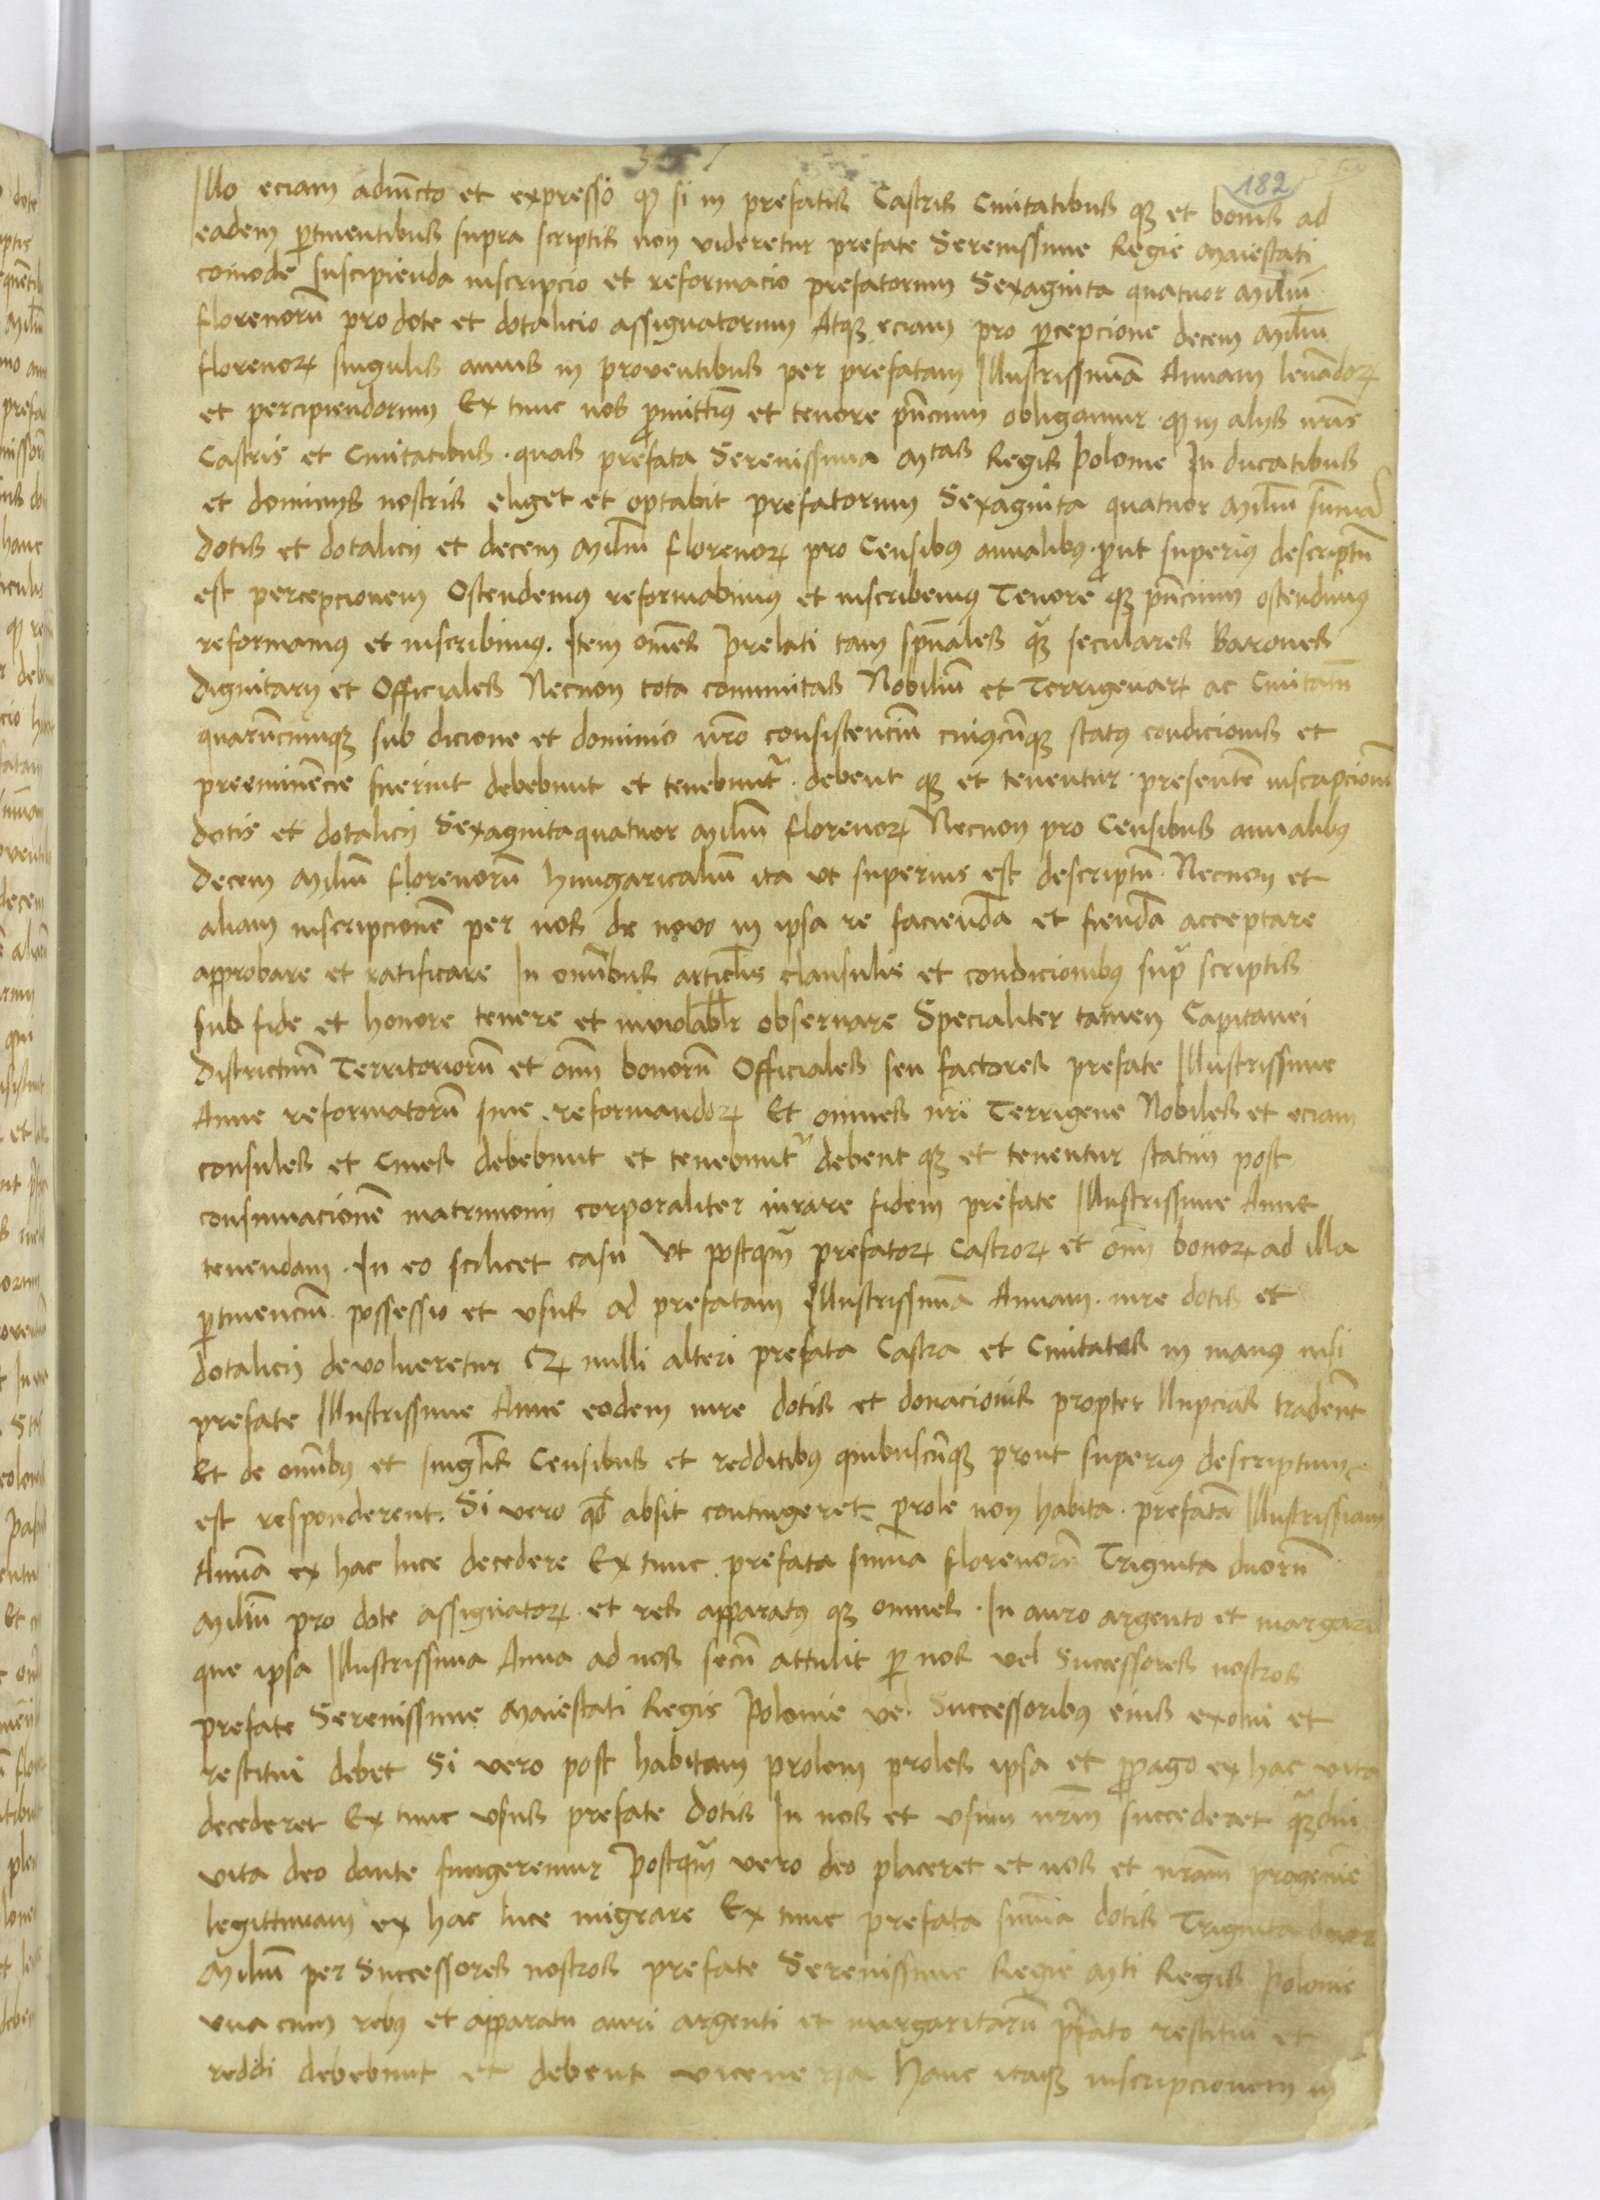 182
Illo eciam adiu̅cto et expresso qꝫ si in prefatis Castris Ciuitatibus qꝫ et bonis ad
eadem ꝑtinentibus supra scriptis non videretur prefate Serenissime Regie Maiestati
comode suscipienda inscripcio et reformacio prefatorum Sexaginta quatuor Miliu̅
florenoru̅ pro dote et dotalicio assignatorum Atqꝫ eciam pro ꝑcepcione decem Miliu̅
florenorꝝ singulis annis in proventibus per prefatam Illustrissima̅ Annam leuandorꝝ
et percipiendorum Ex tunc nos ꝓmittimꝰ et tenore pn̅cium obligamur qꝫ in alijs nr̅is
Castris et Ciuitatibus quas prefata Serenissima Mtas Regis Polonie In ducatibus
et dominijs nostris eliget et optabit prefatorum Sexaginta quatuor Miliu̅ sum̅a
dotis et dotalicij et decem Miliu̅ florenorꝝ pro Censibꝰ annalibꝰ ꝓut superiꝰ descriptu̅
est percepcionem Ostendemꝰ reformabimꝰ et inscribemꝰ Tenore qꝫ pn̅cium ostendimꝰ
reformamꝰ et inscribimꝰ. Item om̅es Prelati tam spn̅ales qꝫ seculares Barones
dignitarij et Officiales Necnon tota com̅unitas Nobiliu̅ et Terrigenarꝝ ac Ciuitatu̅
quaru̅cumqꝫ sub dicione et dominio nr̅o consistenciu̅ cuiꝰcu̅qꝫ statꝰ condicionis et
preeminencie fuerint debebunt et tenebunt̅ debent qꝫ et tenentur presente̅ inscripcione̅
dotis et dotalicij Sexagintaquatuor Miliu̅ florenorꝝ Necnon pro Censibus annalibꝰ
Decem Miliu̅ florenoru̅ hungaricaliu̅ ita vt superius est descriptu̅ Necnon et
aliam inscripcione̅ per nos de novo in ipsa re facienda̅ et fienda̅ acceptare
approbare et ratificare In om̅ibus articl̅is clausulis et condicionibꝰ sup̅ scriptis
sub fide et honore tenere et inviolabl̅r obseruare Specialiter tamen Capitanei
districtuu̅ Territorioru̅ et om̅ bonoru̅ Officiales seu factores prefate Illustrissime
Anne reformatoru̅ siue reformandorꝝ Et omnes nr̅i Terrigene Nobiles et eciam
consules et Ciues debebunt et tenebunt̅ debent qꝫ et tenentur statim post
consumacione̅ matrimonij corporaliter iurare fidem prefate Illustrissime Anne
tenendam. In eo scilicet casu Vt postqꝫ prefatorꝝ Castrorꝝ et om̅ bonorꝝ ad illa
ꝑtinenciu̅ possessio et vsus ad prefatam Illustrissima̅ Annam iure dotis et
dotalicij devolueretur Qꝫ nulli alteri prefata Castra et Ciuitates in manꝰ nisi
prefate Illustrissime Anne eodem iure dotis et donacionis propter Nupcias trade̅nt
Et de om̅ibꝰ et singl̅is Censibus et redditibꝰ quibuscu̅qꝫ prout superiꝰ descriptum
est responderent. Si vero qd̅ absit contingeret prole non habita prefata̅ Illustrissimam
Anna̅ ex hac luce decedere Ex tunc prefata suma florenoru̅ Triginta duoru̅
Miliu̅ pro dote assignatorꝝ et res apparatꝰ qꝫ omnes In auro argento et margari
que ipsa Illustrissima Anna ad nos secu̅ attulit ꝑ nos vel Successores nostros
prefate Serenissime Maiestati Regis Polonie vel Successoribꝰ eius exolui et
restitui debet Si vero post habitam prolem proles ipsa et ꝓpago ex hac vita
decederet Ex tunc vsus prefate dotis In nos et vsum nr̅m succederet qꝫdiu
vita deo dante fungeremur Postqꝫ vero deo placeret et nos et nr̅am progenie̅
legittimam ex hac luce migrare Ex tunc prefata sum̅a dotis Triginta duorꝝ
Miliu̅ per Successores nostros prefate Serenissime Regie Mti Regis Polonie
vna cum rebꝰ et apparatu auri argenti et margaritaru̅ p̅fato restitui et
reddi debebunt et debent Hanc itaqꝫ inscripcionem in